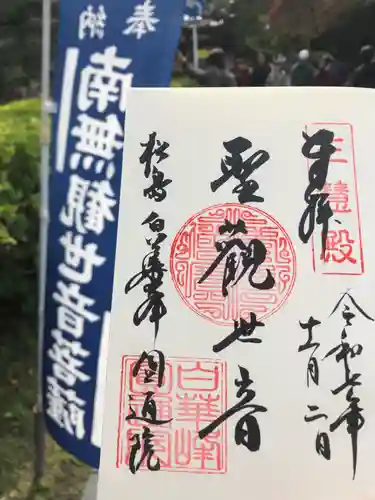 奉納
南無観世音菩薩
奉拝
三慧殿
令和七年
十一月二日
聖観世音
松島 白華峰 圓通院
白華峰
圓通院